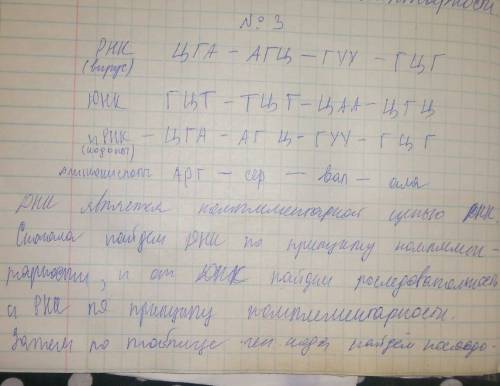 № 3
РНК ЦГА – АГЦ – ГУУ – ГЦГ
(вирус)
ДНК ГЦТ – ТЦГ – ЦАА – ЦГЦ
иРНК – ЦГА – АГЦ – ГУУ – ГЦГ
(кодоны)
аминокислоты АРГ – сер – вал – ала
ДНК является комплементарной цепью РНК.
Сначала найдем ДНК по принципу комплемен-
тарности, и от ДНК найдем последовательность
и РНК по принципу комплементарности.
Затем по таблице ген кода найдём последо-